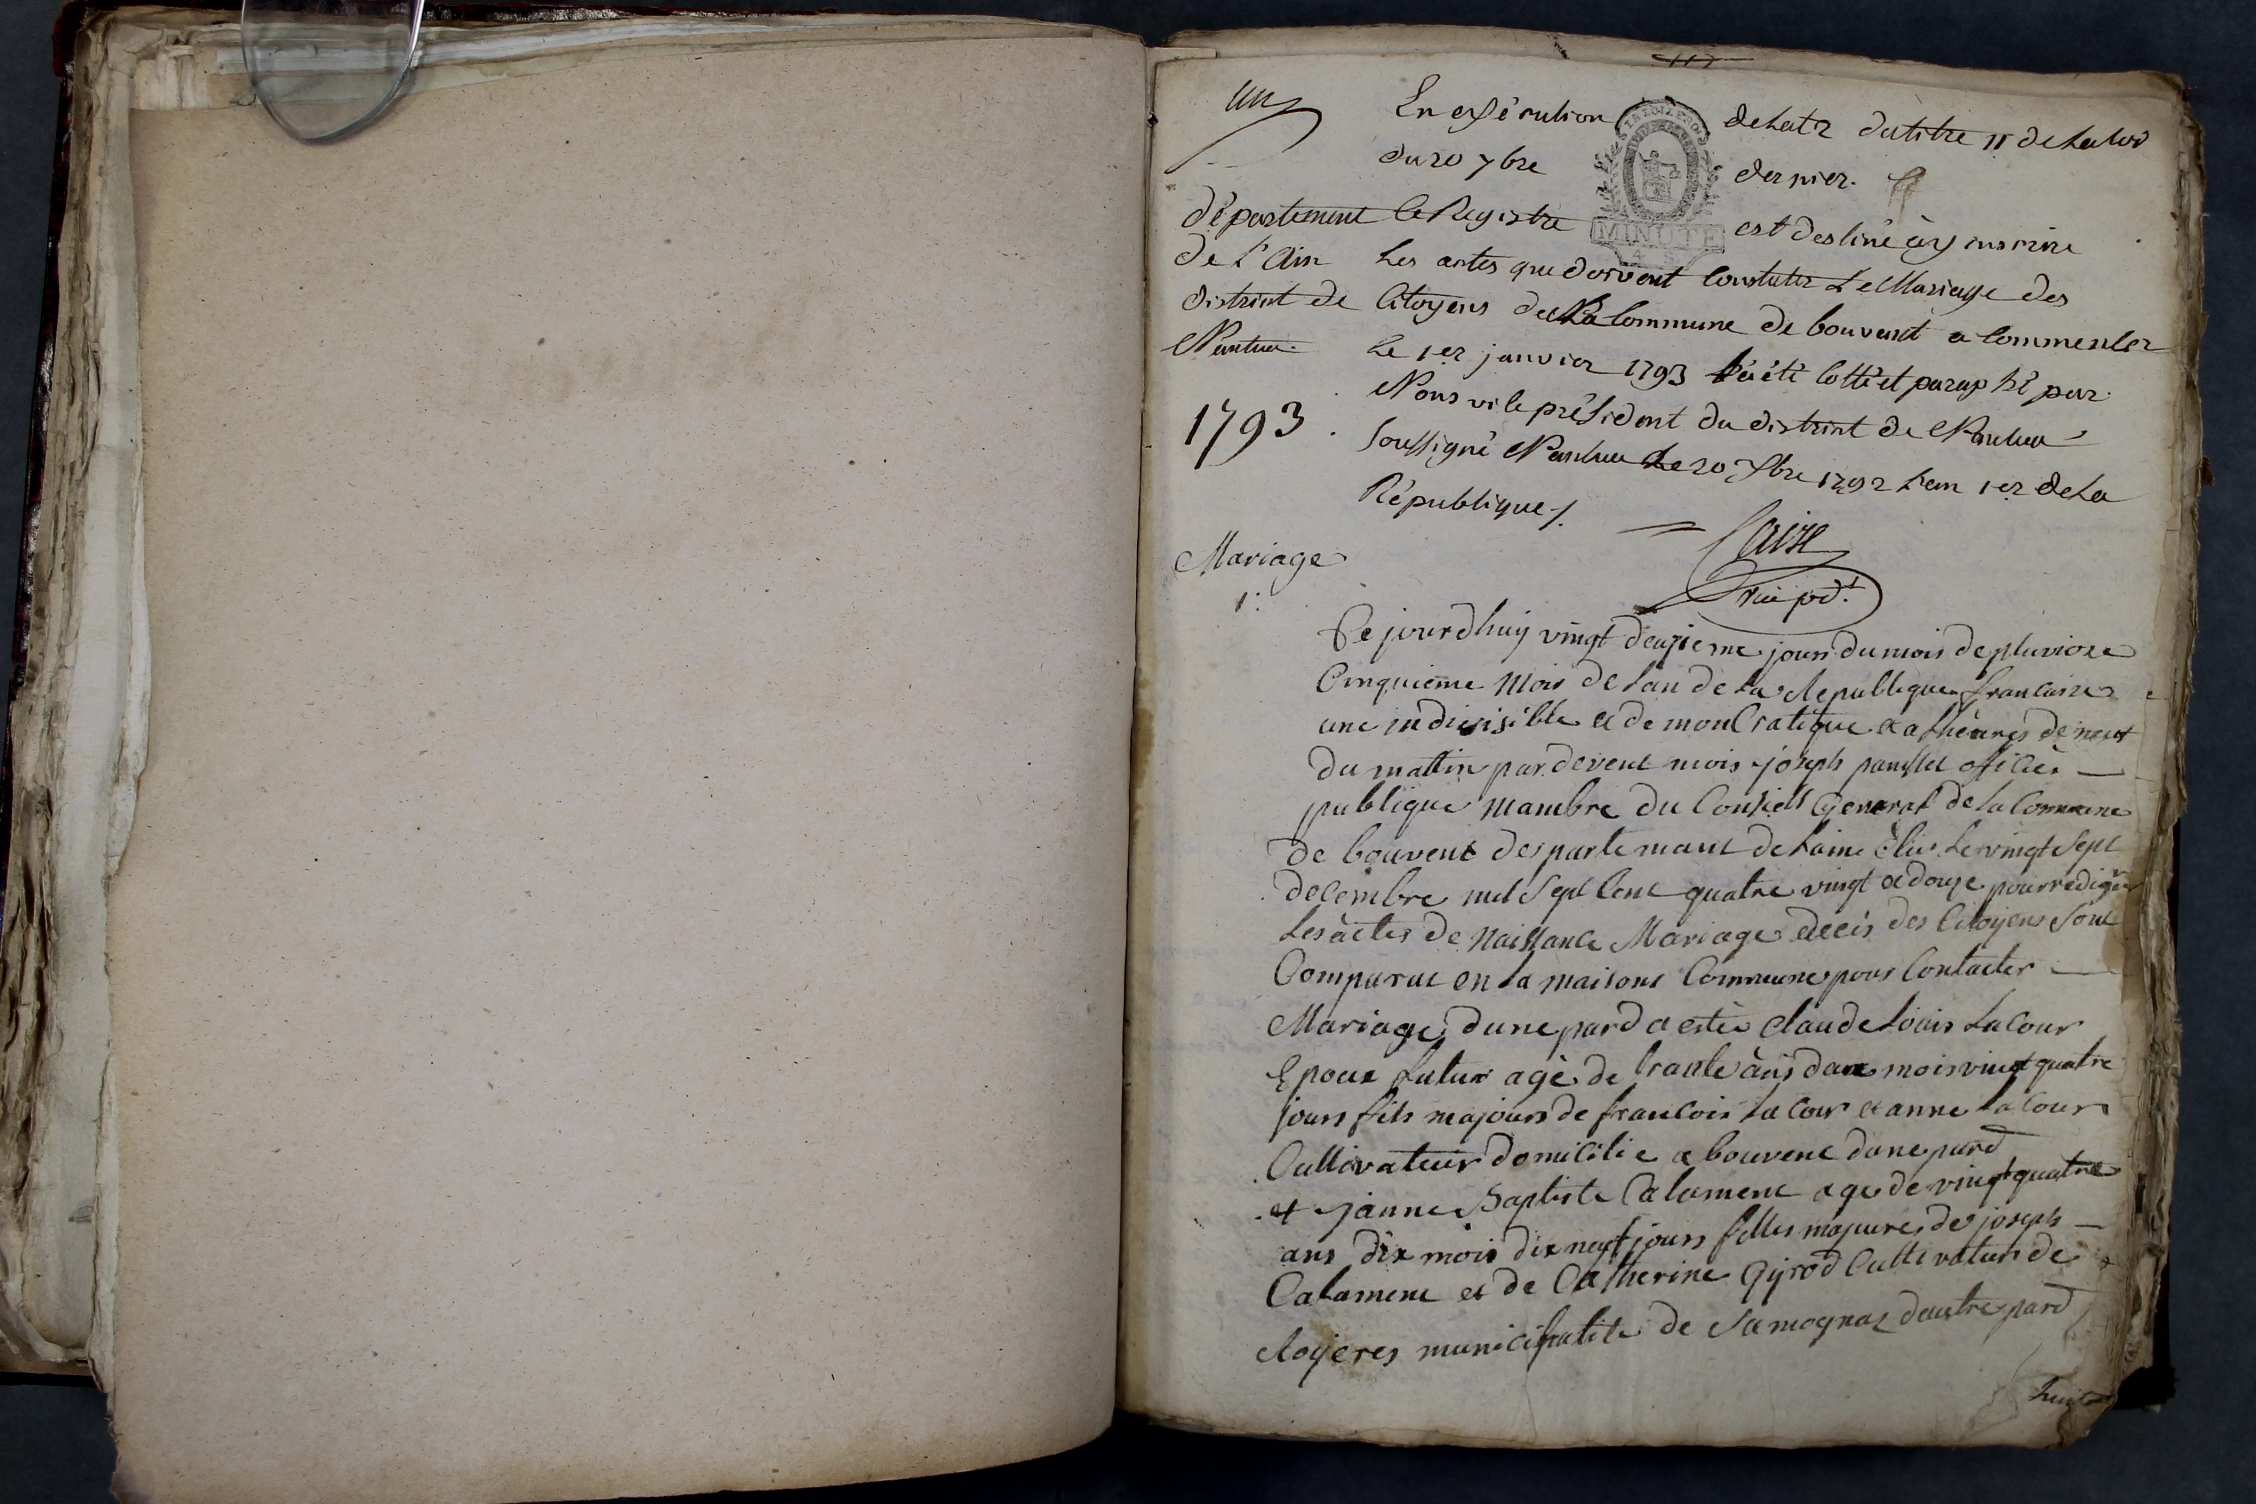 un
En exécution de Lart 2 du titre 11 de La Loi
du 20 7bre dernier.
département
de l'Ain
district de
Nantua.
Ce Registre est destiné à y inscrire
Les actes que doivent Constater Le Mariage des
Citoyens de La Commune de bouvent a Commencer
Le 1er janvier 1793 a été Cotté et paraphé par
Nous vice président du district de Nantua
Soussigné Nantua Le 20 Xbre 1792 L'an 1er de La
République /.
1793.
MINUTE
Mariage
1.
Ce jourdhuy vingt deuzieme jour du mois de pluvioze
Cinquieme Mois de Lan de La Republique francaize
une indivisible et demoncratique a heures de neuf
du mattin par devent mois joseph officier
publique Mambre du Conseils General de la Commune
de bouvent despartemant de Lain élu Le vingt Sept
decembre mil Sept Cent quatre vingt et douze pour rediger
Les actes de Naissance Mariage deces des Citoyens Sont
Comparut en La maisons Commune pour Contacter
Mariage dune pard a estée Claude Louis La Cour
Epoux futur agé de trante ans mois vingt quatre
jours fils majours de francois La Cour et anne La Cour
Cultivateur domicilie a bouvent dune pard
et janne Baptiste Calament age de vingt quatre
ans dix mois dix neuf jours filles majure de joseph
Calament et de Catherine Gyrod Cultivature de
municipalité de Samognat dautre pard